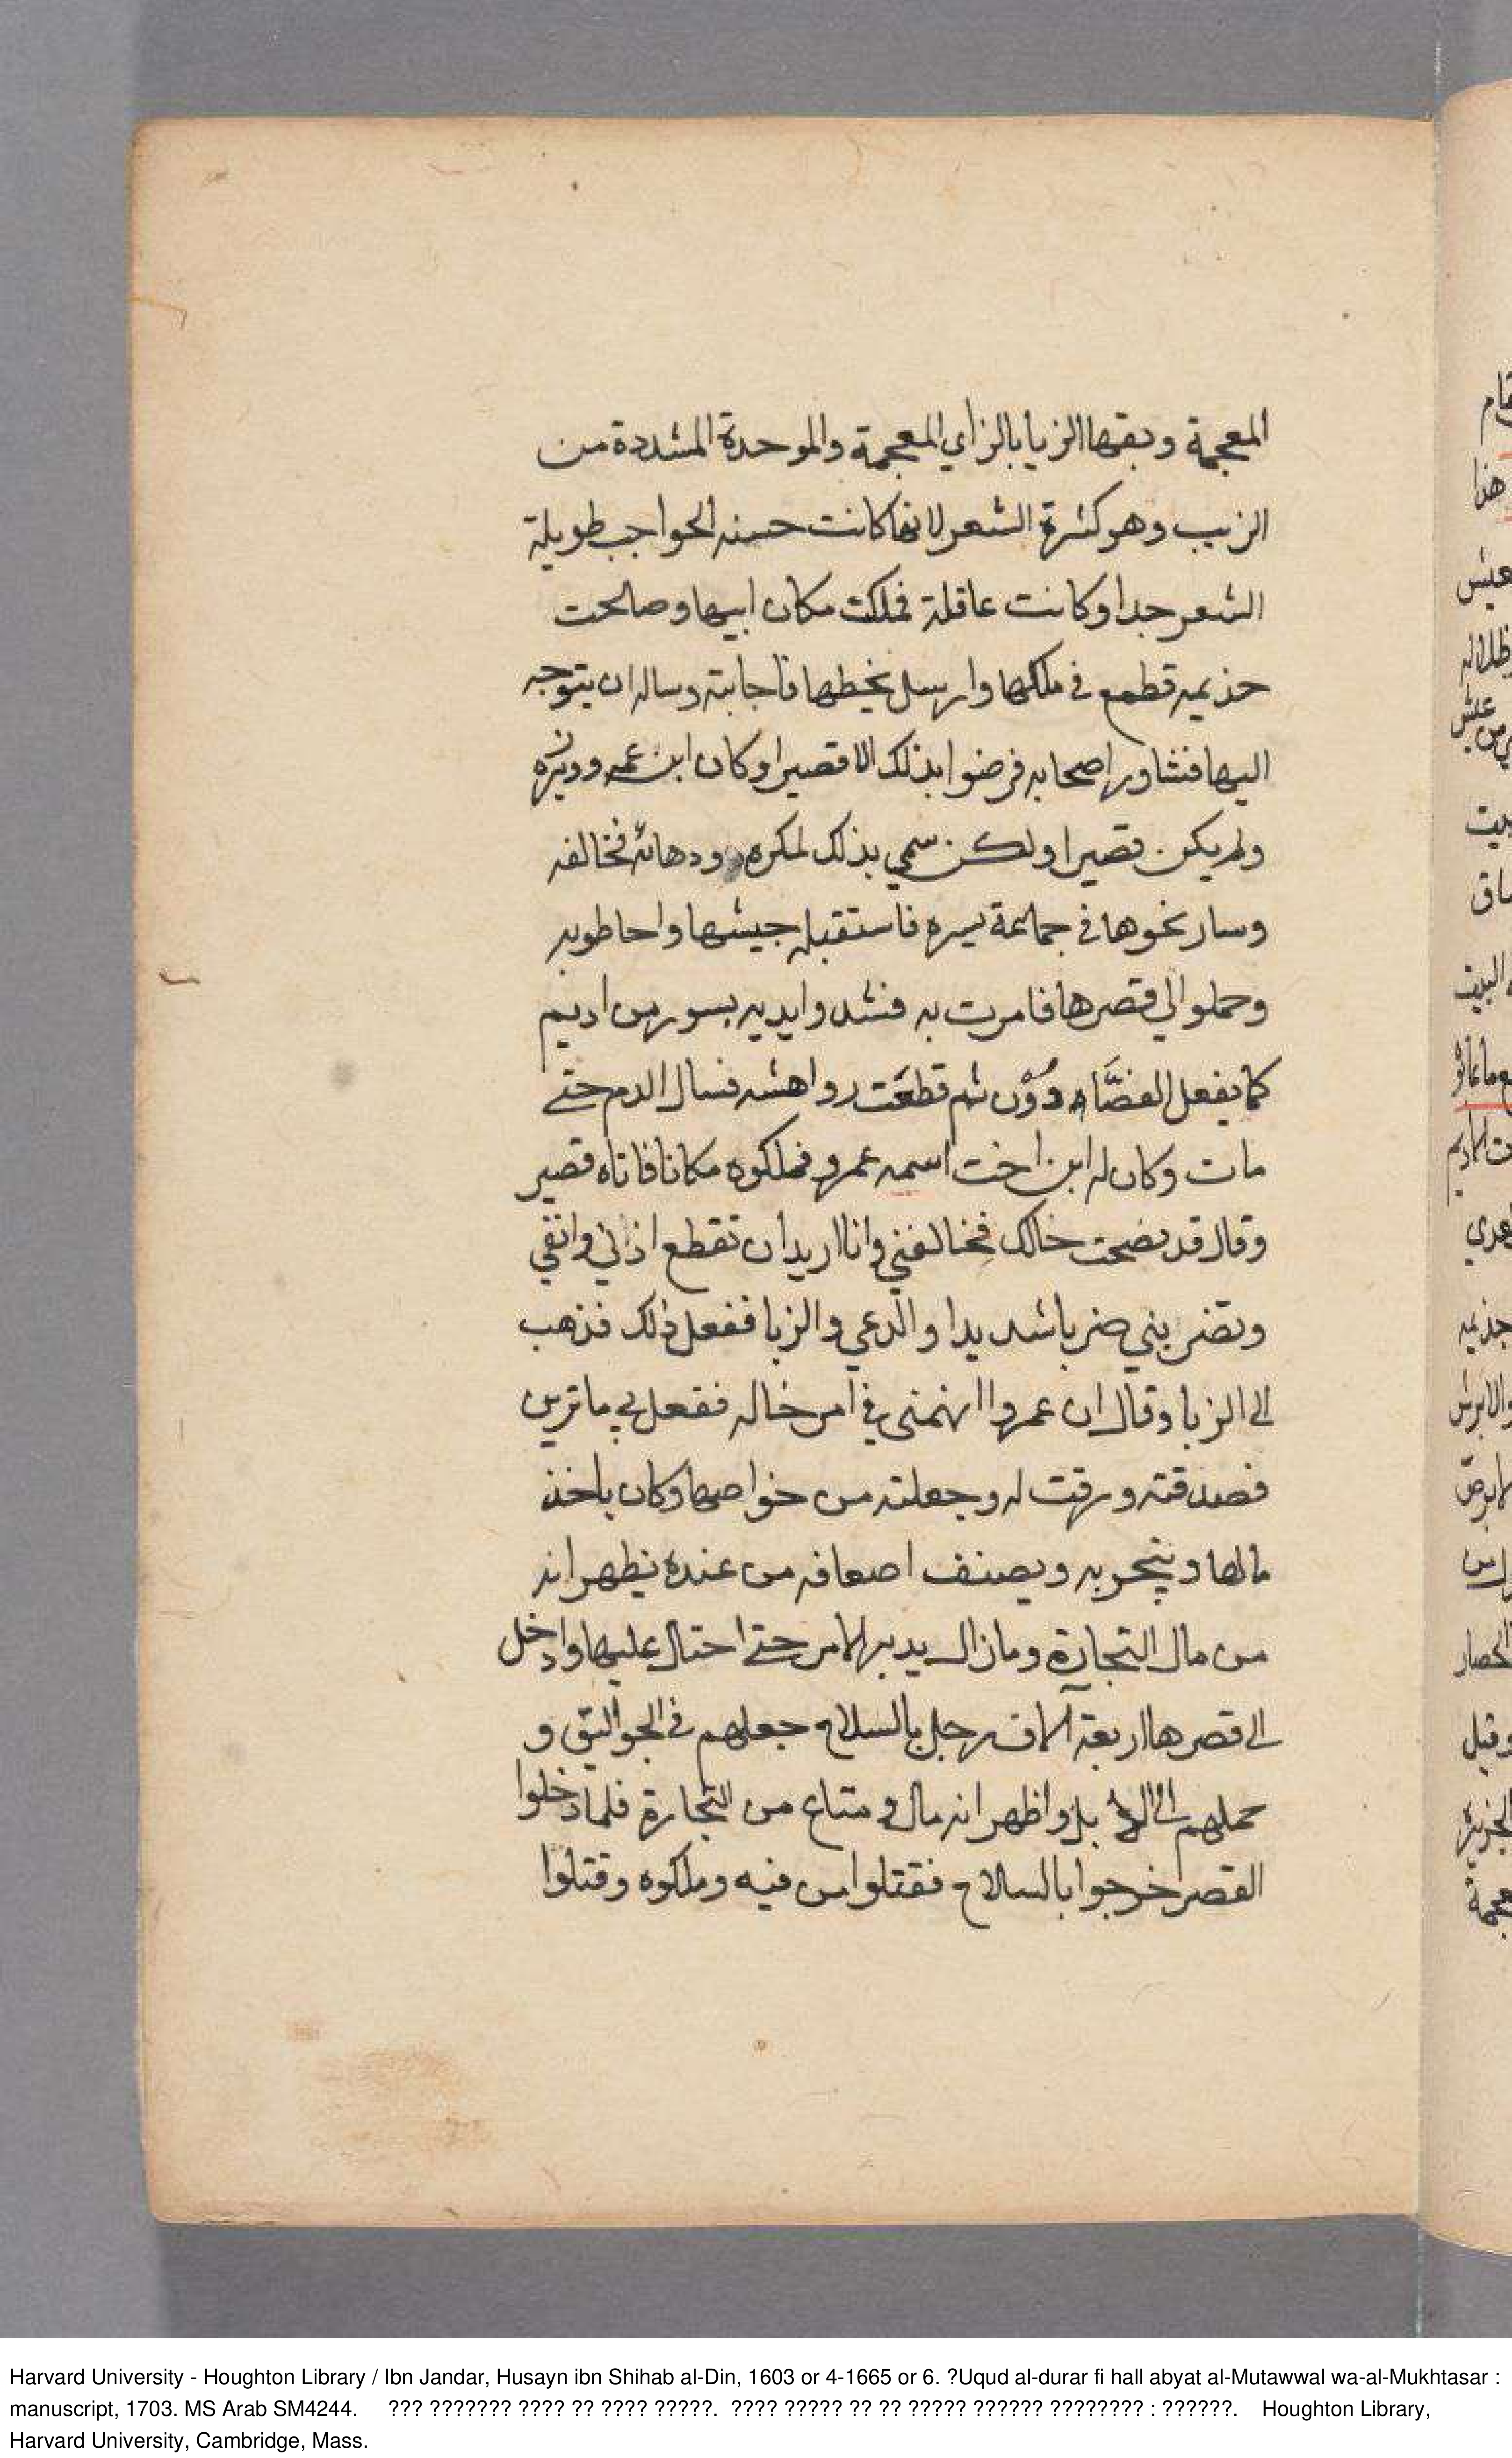 المعجمة وبقها الزبا بالزاي المعجمة والموحدة المشددة من
الزبب وهو كثرة الشعر لانها كانت حسنه الحواجب طويلة
الشعر جدا وكانت عاقلة فملكت مكان ابيها وصالحت
جذيمه قطمع في ملكها وارسل يخطبها فاجابته وساله ان يتوجه
اليها فنشاور اصحابه فرضوا بذلك الا قصيرا وكان ابن عمه ووزيره
ولم يكن قصيرا ولكن سمي بذلك لمكره ودهائه فخالفه
وسار نحوها في جماعة يسيره فاستقبله جيشها واحاطو به
وحملو الي قصرها فامرت به فشد وا يديه بسور من اديم
كما يفعل ثم قطعت رواهشه فسال الدم حتى
مات وكان له ابن اخت اسمه عمرو فملكوه مكانا فاتاه قصير
وقال قد نصحت خالك فخالفني وانا اريد ان تقطع اذني وانفي
وتضربني ضربا شديدا والدعي والزبا ففعل ذلك فذهب
الى الزبا وقال ان عمروا اتهمني في امر خاله ففعل بي ما ترين
فصدقته ورقت له وجعلته من خواصها وكان ياخذ
مالها ويتجر به ويصنف اصعافه من عنده يظهر انه
من مال التجارة ومازال يدبر الامر حتى احتال عليها وادخل
الى قصرها اربعة آلاف رجل بالسلاح جعلهم في الجواليق و
حملهم الى بل واظهر انه مال و متاع من التجارة فلما دخلوا
القصر اخرجوا بالسلاح فقتلوا من فيه وملكوه وقتلوا
Harvard University - Houghton Library / Ibn Jandar, Husayn ibn Shihab al-Din, 1603 or 4-1665 or 6. ?Uqud al-durar fi hall abyat al-Mutawwal wa-al-Mukhtasar :
manuscript, 1703. MS Arab SM4244. ??? ??????? ???? ?? ???? ?????. ???? ????? ?? ?? ????? ?????? ???????? : ??????. Houghton Library,
Harvard University, Cambridge, Mass.